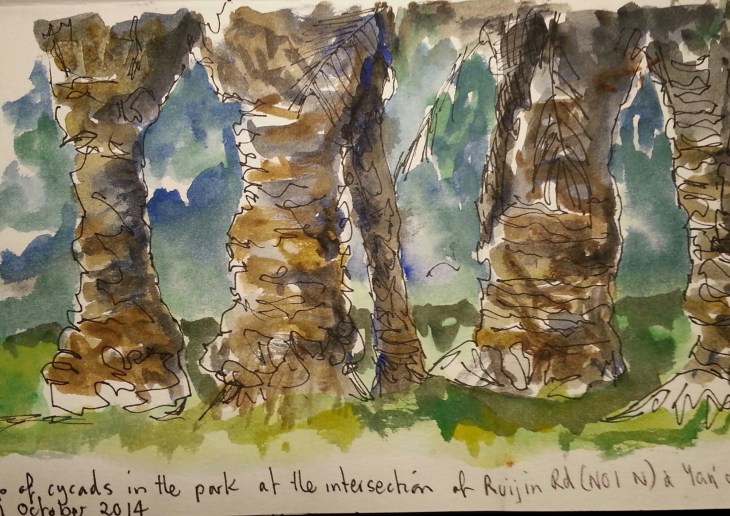 of cycads in the park at the intersection of Ruijin Rd (NO1 N) & Yan'
October 2014